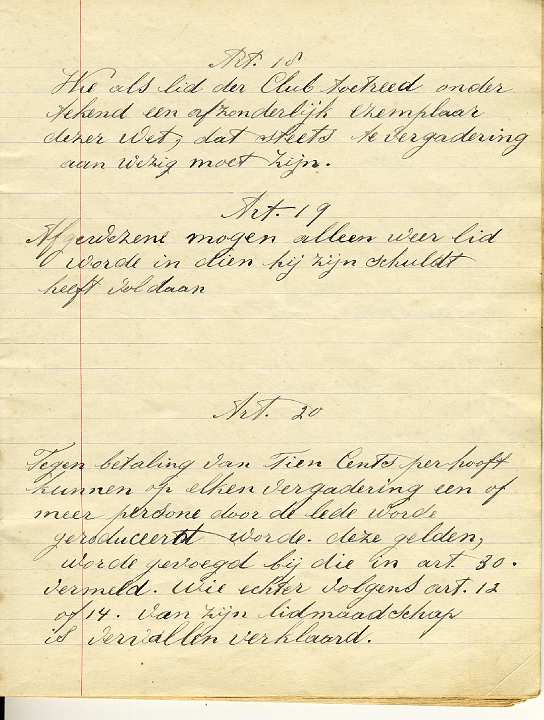 Art. 18
Wie als lid der Club toetreed onder
tekend een afzonderlijk exemplaar
dezer Wet, dat steets te vergadering
aan wezig moet zijn.
Art. 19
Afgewezene mogen alleen weer lid
worde in dien hij zijn schuldt
heeft voldaan
Art. 20
Tegen betaling van Tien Cents per hooft
kunnen op elken vergadering een of
meer persone door de lede worde
worde. deze gelden,
worde gevoegd bij die in art. 30.
vermeld. Wie echter volgens art. 12
of 14. van zijn lidmaadschap
is vervallen verklaard.